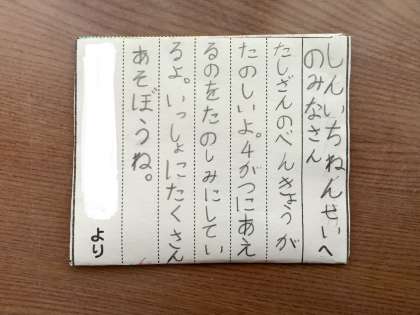 しんいちねんせいへ
のみなさん
たしざんのべんきょうが
たのしいよ。4がつにあえ
るのをたのしみにしてい
るよ。いっしょにたくさん
あそぼうね。
より